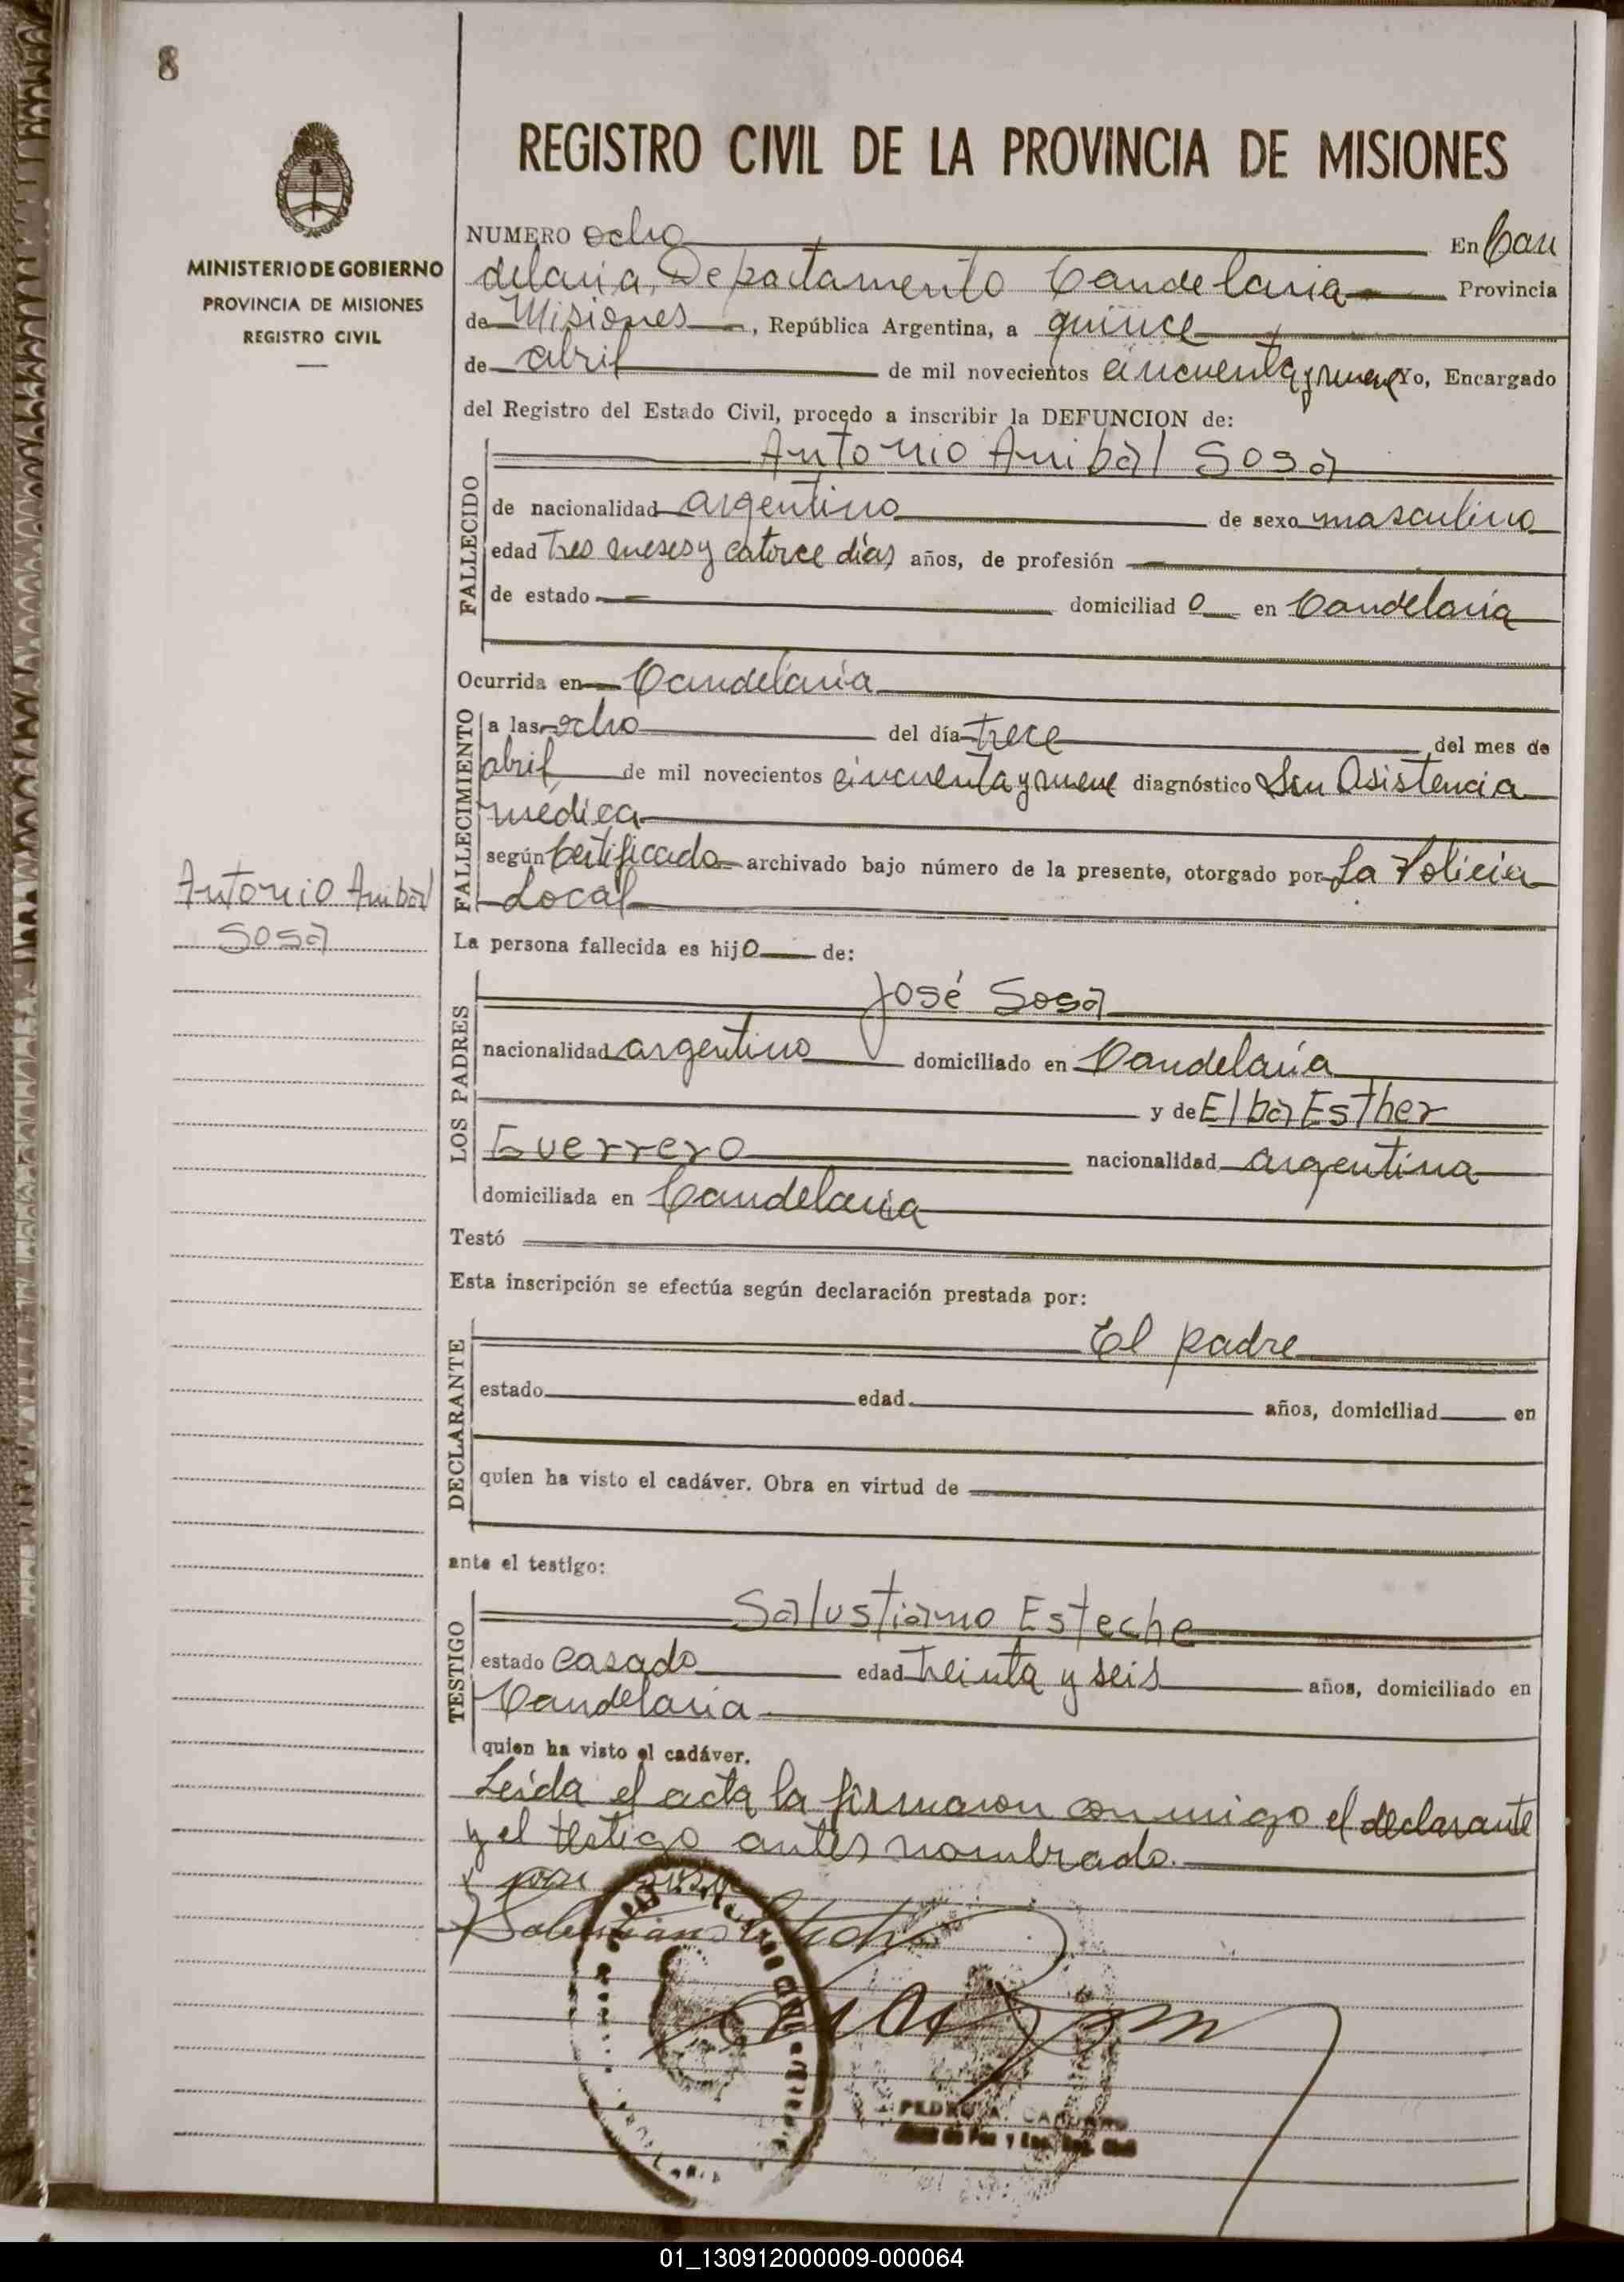 8
REGISTRO CIVIL DE LA PROVINCIA DE MISIONES
MINISTERIO DE GOBIERNO
PROVINCIA DE MISIONES
REGISTRO CIVIL
NUMERO ocho En Can
delaria, Departamento Candelaria Provincia
de Misiones, República Argentina, a quince
de abril de mil novecientos cincuenta y nueve Yo, Encargado
del Registro del Estado Civil, procedo a inscribir la DEFUNCION de:
Antonio Anibal Sosa
FALLECIDO
de nacionalidad argentino de sexo masculino
edad tres meses y catorce días años, de profesión
de estado domiciliado en Candelaria
Ocurrida en Candelaria
FALLECIMIENTO
a las ocho del día trece del mes de
abril de mil novecientos cincuenta y nueve diagnóstico Sin Asistencia
médica
según Certificado archivado bajo número de la presente, otorgado por La Policia
Local
Antonio Anibal
Sosa
La persona fallecida es hijo de:
LOS PADRES
José Sosa
nacionalidad argentino domiciliado en Candelaria
y de Elba Esther
Guerrero nacionalidad argentina
domiciliada en Candelaria
Testó
Esta inscripción se efectúa según declaración prestada por:
DECLARANTE
El padre
estado edad años, domiciliad en
quien ha visto el cadáver. Obra en virtud de
ante el testigo:
TESTIGO
Salustiano Esteche
estado casado edad treinta y seis años, domiciliado en
Candelaria
quien ha visto el cadáver.
Leída el acta la firmaron conmigo el declarante
y el testigo antes nombrado.
PEDRO A.
01_130912000009-000064